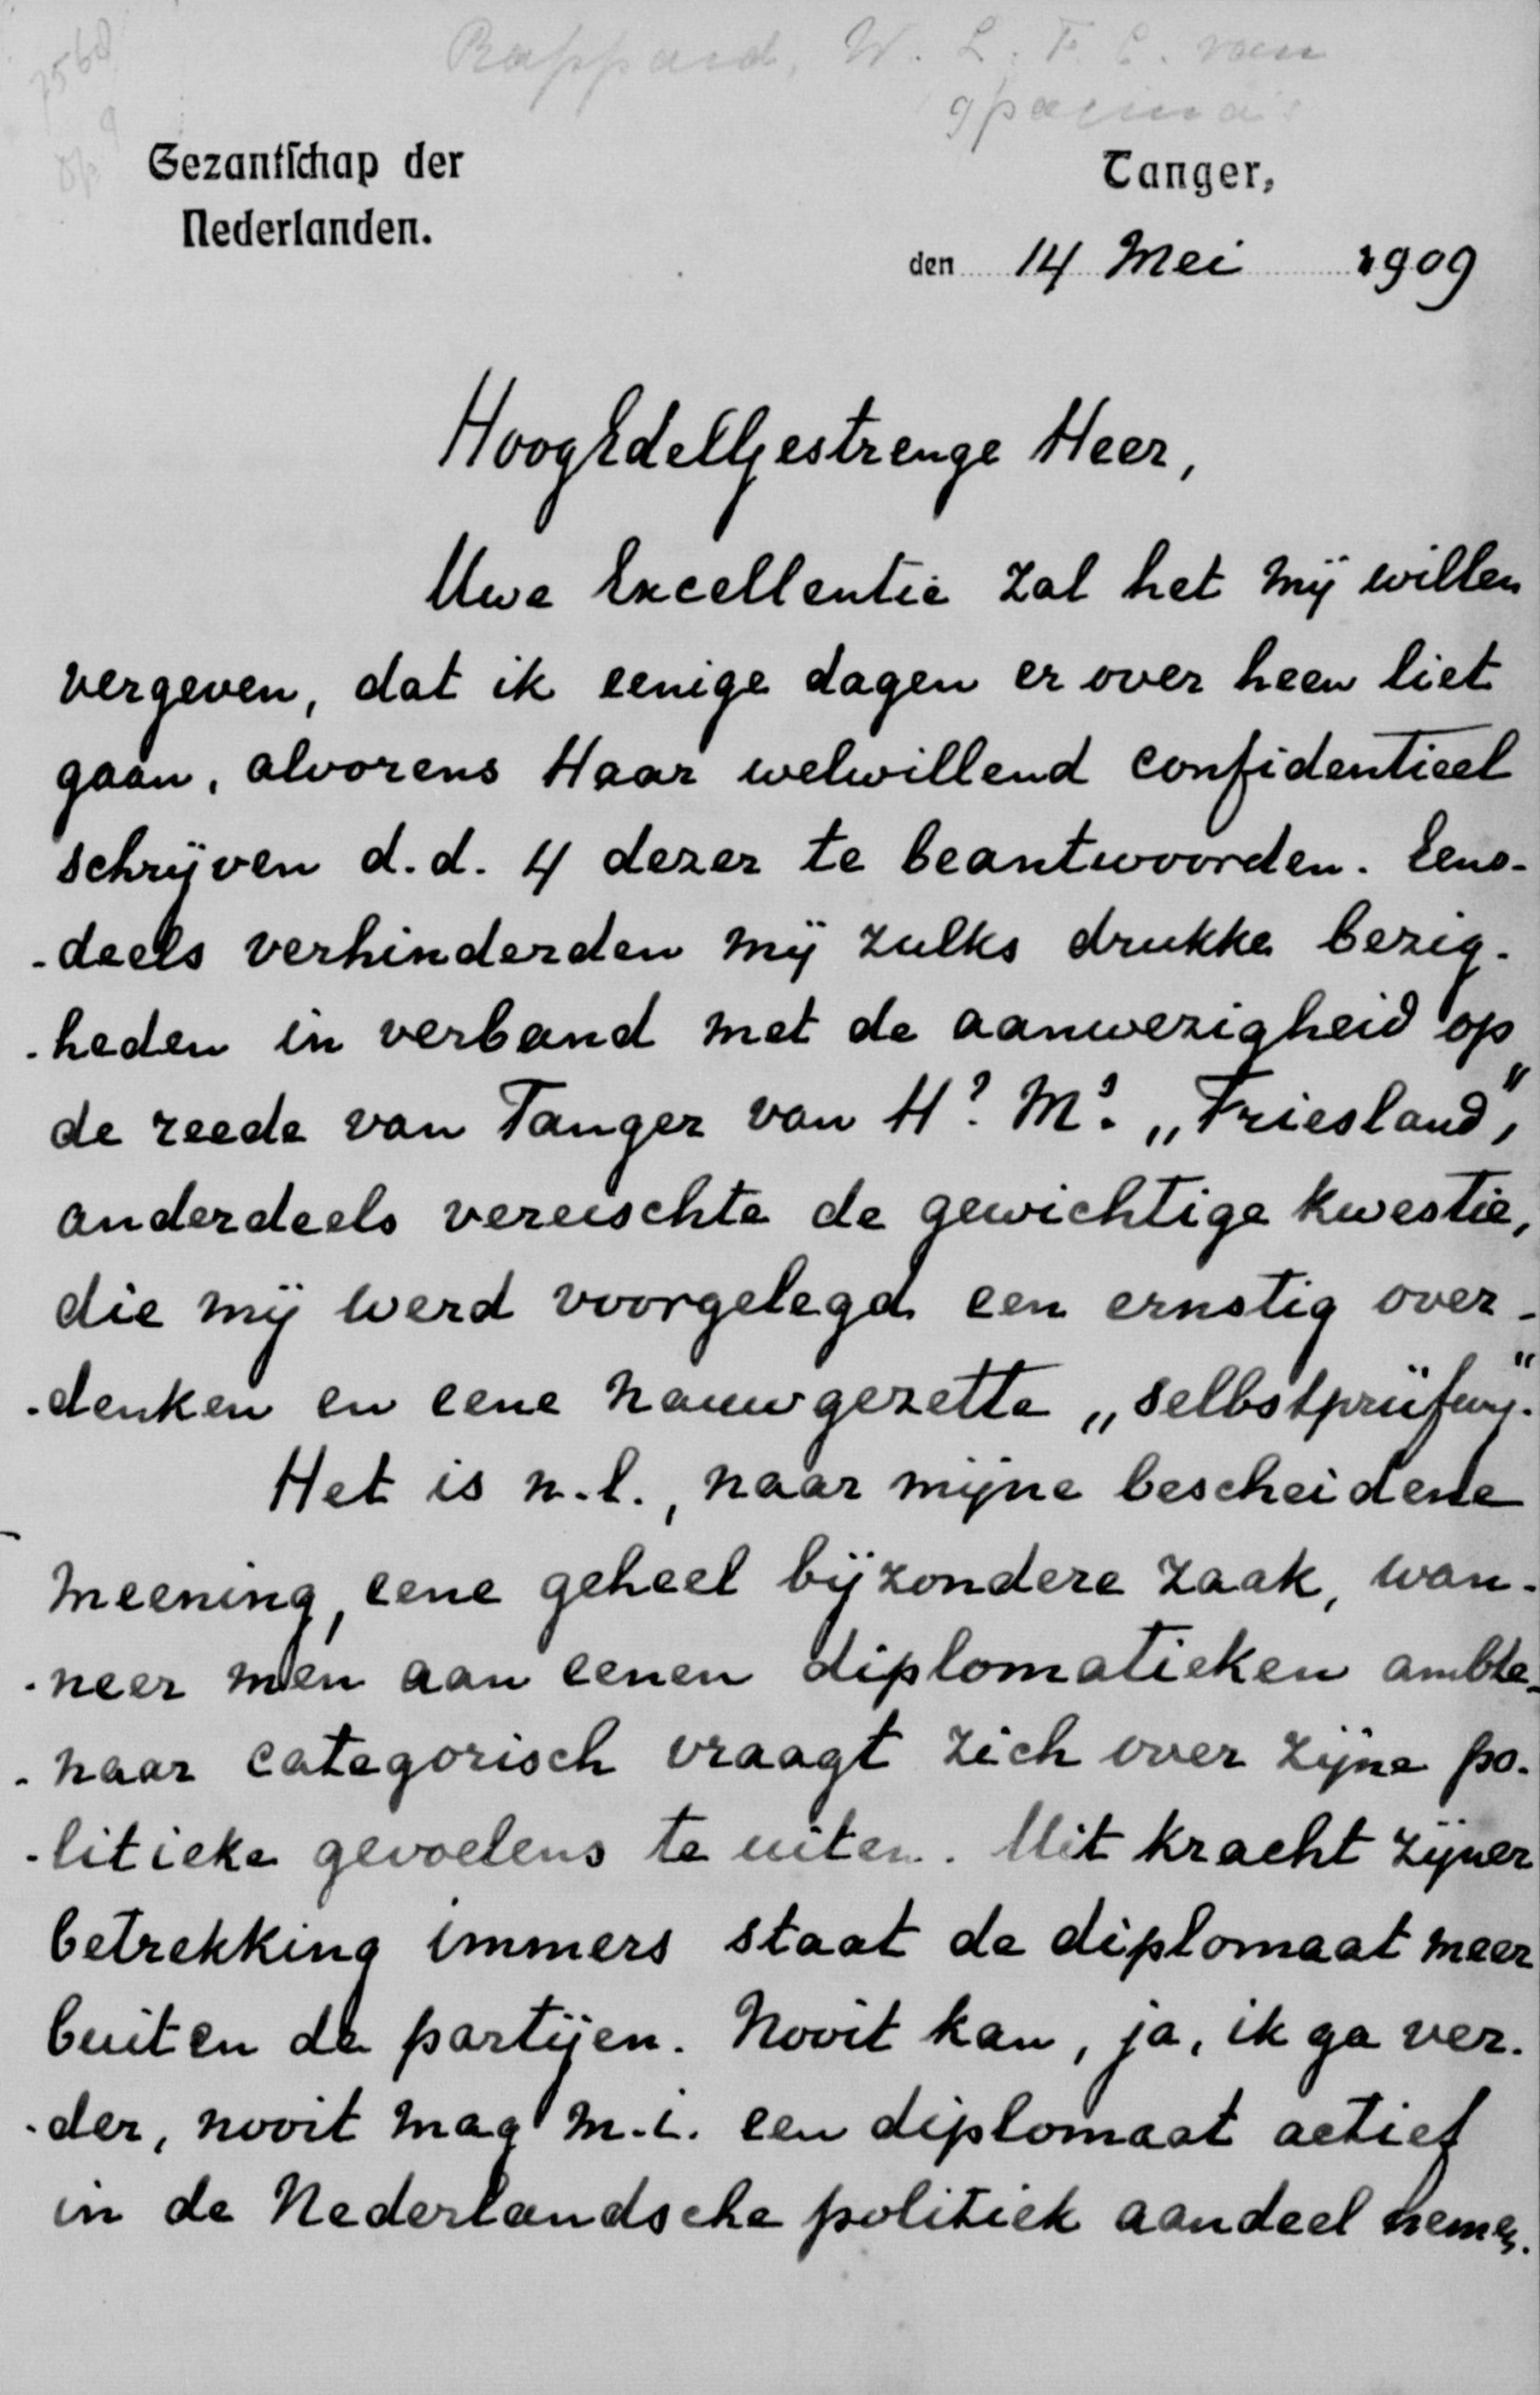 Rappard, W. L. F. C. van
Gezantschap der
Nederlanden.
Tanger,
den 14 Mei 1909
HoogEdelGestrenge Heer,
Uwe Excellentie zal het mij willen
vergeven, dat ik eenige dagen er over heen liet
gaan, alvorens Haar welwillend confidentieel
schrijven d.d. 4 dezer te beantwoorden. Eens-
-deels verhinderden mij zulks drukke bezig-
-heden in verband met de aanwezigheid op
de reede van Tanger van Hs. Ms. „Friesland”,
anderdeels vereischte de gewichtige kwestie,
die mij werd voorgelegd een ernstig over-
-denken en eene nauwgezette „selbstprüfung”.
Het is n.l., naar mijne bescheidene
meening, eene geheel bijzondere zaak, wan-
-neer men aan eenen diplomatieken ambte-
-naar categorisch vraagt zich over zijne po-
-litieke gevoelens te uiten. Uit kracht zijner
betrekking immers staat de diplomaat meer
buiten de partijen. Nooit kan, ja, ik ga ver-
-der, nooit mag m.i. een diplomaat actief
in de Nederlandsche politiek aandeel nemen.